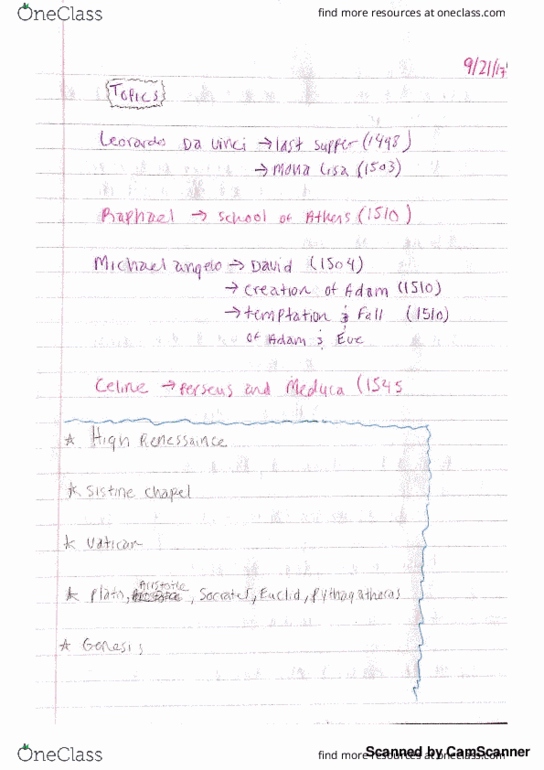 OneClass
find more resources at oneclass.com
9/21/17
Topics
Leorardo Da Vinci → last supper (1498)
→ Mona Lisa (1503)
Raphael → School of Athens (1510)
Michael angelo → David (1504)
→ Creation of Adam (1510)
→ temptation & Fall (1510)
of Adam & Eve
Celine → Perseus and Meduca (1545
★ High Renessaince
★ Sistine chapel
★ Vatican
★ Plato, Aristotle, Socrates, Euclid, Pythagatheras
★ Genesis
OneClass
find more resources at oneclass.com
Scanned by CamScanner